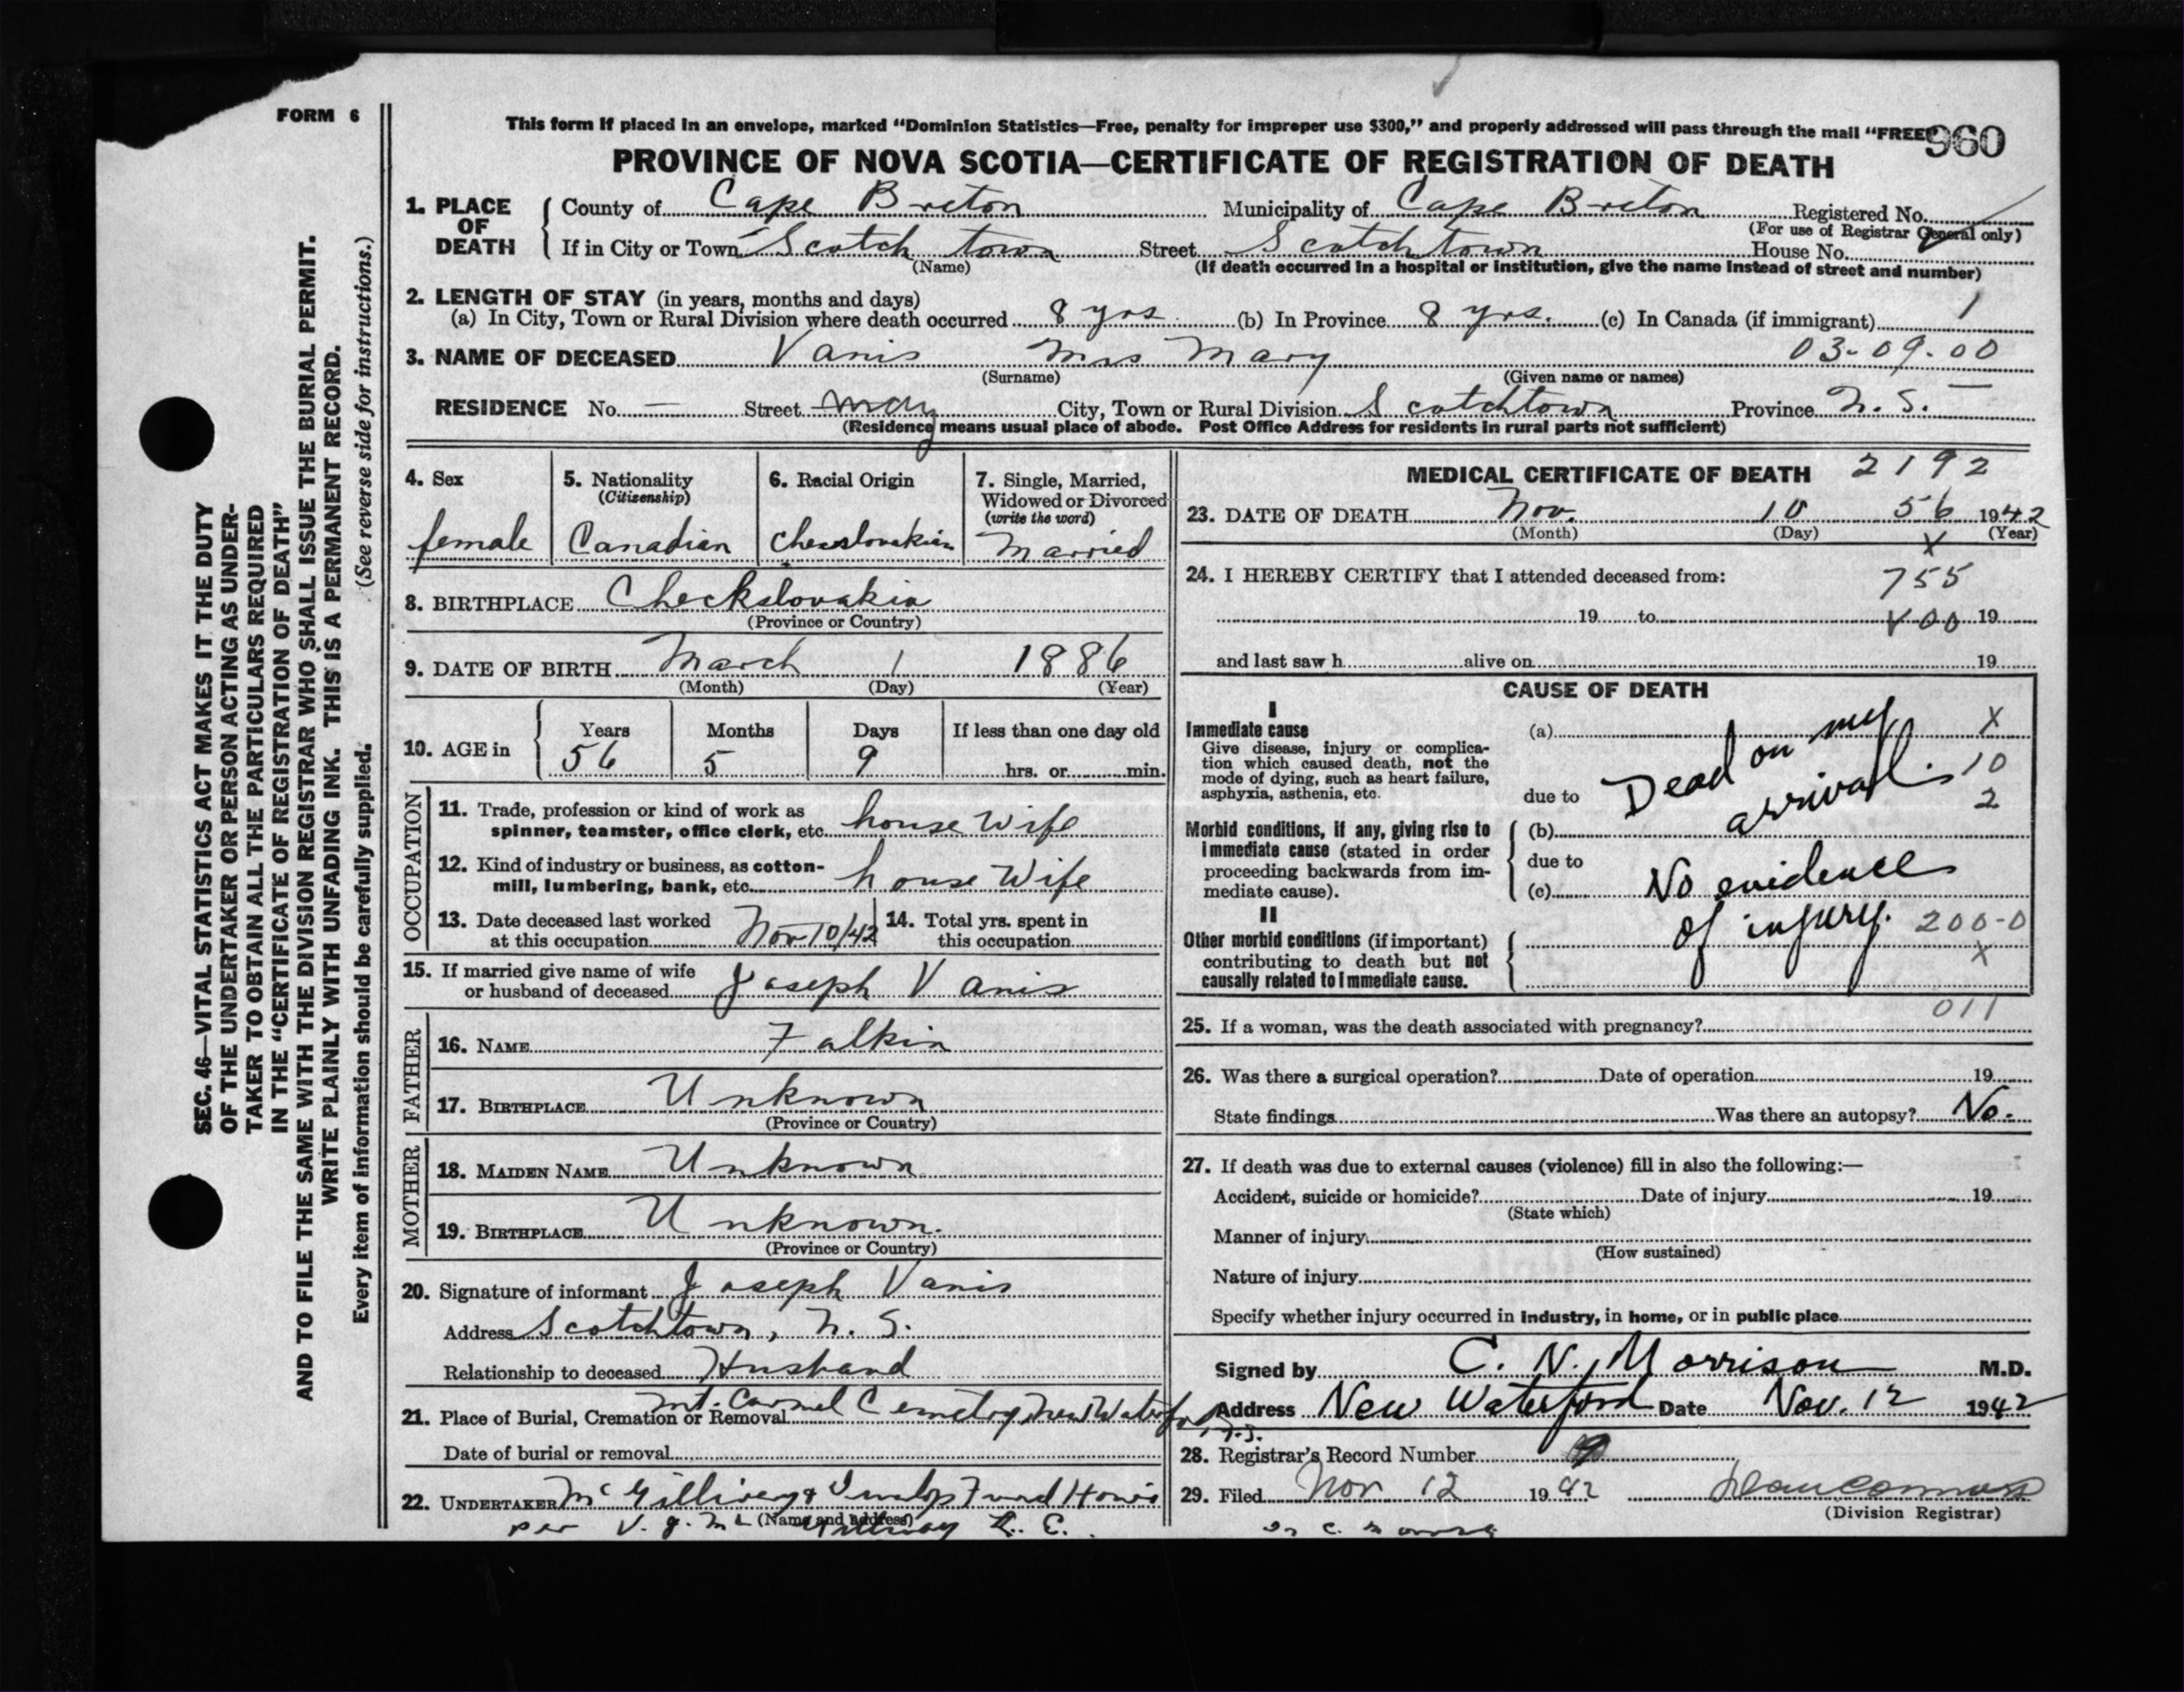 FORM 6
This form if placed in an envelope, marked "Dominion Statistics—Free, penalty for improper use $300," and properly addressed will pass through the mail "FREE"
960
PROVINCE OF NOVA SCOTIA—CERTIFICATE OF REGISTRATION OF DEATH
SEC. 46—VITAL STATISTICS ACT MAKES IT THE DUTY
OF THE UNDERTAKER OR PERSON ACTING AS UNDER-
TAKER TO OBTAIN ALL THE PARTICULARS REQUIRED
IN THE "CERTIFICATE OF REGISTRATION OF DEATH"
AND TO FILE THE SAME WITH THE DIVISION REGISTRAR WHO SHALL ISSUE THE BURIAL PERMIT.
WRITE PLAINLY WITH UNFADING INK. THIS IS A PERMANENT RECORD.
Every item of information should be carefully supplied. (See reverse side for instructions.)
1. PLACE OF DEATH
County of Cape Breton Municipality of Cape Breton Registered No.
(For use of Registrar General only)
If in City or Town Scotch town Street Scotchtown House No.
(Name) (If death occurred in a hospital or institution, give the name instead of street and number)
2. LENGTH OF STAY (in years, months and days)
(a) In City, Town or Rural Division where death occurred 8 yrs (b) In Province 8 yrs. (c) In Canada (if immigrant) 1
3. NAME OF DECEASED Vanis Mrs Mary 03-09-00
(Surname) (Given name or names)
RESIDENCE No. — Street May City, Town or Rural Division Scotchtown Province N. S.
(Residence means usual place of abode. Post Office Address for residents in rural parts not sufficient)
4. Sex
female
5. Nationality
(Citizenship)
Canadian
6. Racial Origin
Checslovakian
7. Single, Married,
Widowed or Divorced
(write the word)
Married
8. BIRTHPLACE Checkslovakia
(Province or Country)
9. DATE OF BIRTH March 1 1886
(Month) (Day) (Year)
10. AGE in
Years Months Days If less than one day old
56 5 9 hrs. or min.
OCCUPATION
11. Trade, profession or kind of work as
spinner, teamster, office clerk, etc. house wife
12. Kind of industry or business, as cotton-
mill, lumbering, bank, etc. house Wife
13. Date deceased last worked
at this occupation Nov 10/42
14. Total yrs. spent in
this occupation
15. If married give name of wife
or husband of deceased Joseph Vanis
FATHER
16. NAME Falkin
17. BIRTHPLACE Unknown
(Province or Country)
MOTHER
18. MAIDEN NAME Unknown
19. BIRTHPLACE Unknown.
(Province or Country)
20. Signature of informant Joseph Vanis
Address Scotchtown, N. S.
Relationship to deceased Husband
21. Place of Burial, Cremation or Removal Mt. Carmel Cemetry New Waterford, N.S.
Date of burial or removal
22. UNDERTAKER
(Name and address)
per V. J.
MEDICAL CERTIFICATE OF DEATH 2192
23. DATE OF DEATH Nov. 10 56 1942
(Month) (Day) X (Year)
24. I HEREBY CERTIFY that I attended deceased from: 755
19 to 400 19
and last saw h alive on 19
CAUSE OF DEATH
I
Immediate cause
Give disease, injury or complica-
tion which caused death, not the
mode of dying, such as heart failure,
asphyxia, asthenia, etc.
Morbid conditions, if any, giving rise to
immediate cause (stated in order
proceeding backwards from im-
mediate cause).
II
Other morbid conditions (if important)
contributing to death but not
causally related to immediate cause.
(a) X
due to Dead on my arrival. 10
2
(b)
due to
(c) No evidence
of injury. 200-0
X
011
25. If a woman, was the death associated with pregnancy?
26. Was there a surgical operation? Date of operation 19
State findings Was there an autopsy? No.
27. If death was due to external causes (violence) fill in also the following:—
Accident, suicide or homicide? Date of injury 19
(State which)
Manner of injury
(How sustained)
Nature of injury
Specify whether injury occurred in industry, in home, or in public place
Signed by C. N. Morrison M.D.
Address New Waterford Date Nov. 12 1942
28. Registrar's Record Number 9
29. Filed Nov 12 1942
(Division Registrar)